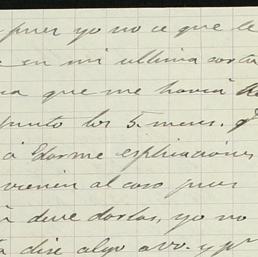 pues yo no ce que le
en mi ultima carta
que me havia
punto los 5 meses.
á darme esplicaciones
vienen al caso pues
deve darlas, yo no
dise algo a vo. y pr